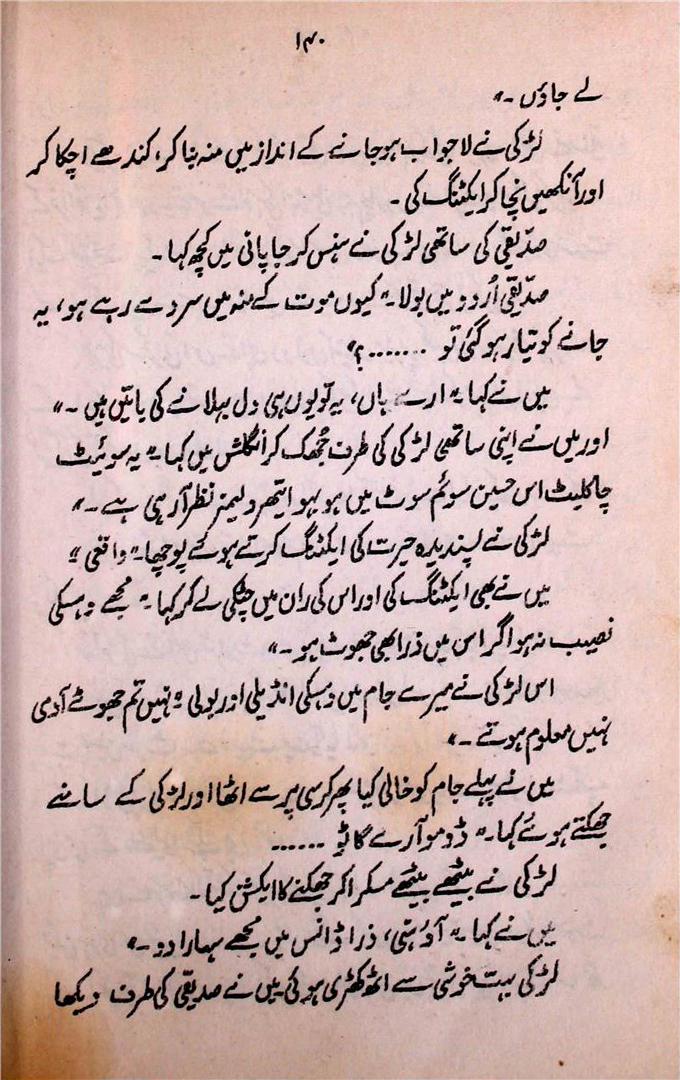 ۱۴۰
لے جاؤں ۔"
لڑکی نے لاجواب ہو جانے کے انداز میں منہ بنا کر، کندھے اچکا کر
اور آنکھیں نچا کر ایکٹنگ کی ۔
صدّیقی کی ساتھی لڑکی نے ہنس کر جاپانی میں کچھ کہا ۔
صدّیقی اُردو میں بولا۔" کیوں موت کے منہ میں سر دے رہے ہو، یہ
جانے کو تیار ہو گئی تو .......؟"
میں نے کہا " ارے ہاں، یہ تو یوں ہی دل بہلانے کی باتیں ہیں ۔"
اور میں نے اپنی ساتھی لڑکی کی طرف جُھک کر انگلش میں کہا ۔" یہ سوئیٹ
چاکلیٹ اس حسین سوئم سوٹ میں ہو بہو ایتھر ولیمز نظر آ رہی ہے ۔"
لڑکی نے پسندیدہ حیرت کی ایکٹنگ کرتے ہوئے پوچھا ۔" واقعی "
میں نے بھی ایکٹنگ کی اور اس کی ران میں چٹکی لے کر کہا " مجھے وہسکی
نصیب نہ ہو اگر اس میں ذرا بھی جھوٹ ہو ۔"
اس لڑکی نے میرے جام میں وہسکی انڈیلی اور بولی " نہیں تم جھوٹے آدمی
نہیں معلوم ہوتے ۔"
میں نے پہلے جام کو خالی کیا پھر کرسی پر سے اٹھا اور لڑکی کے سامنے
جھکتے ہوئے کہا ۔" ڈوموآرے گاٹو ......
لڑکی نے بیٹھے بیٹھے مسکرا کر جھکنے کا ایکشن کیا ۔
میں نے کہا " آؤ ہنی، ذرا ڈانس میں مجھے سہارا دو ۔"
لڑکی بہت خوشی سے اٹھ کھڑی ہوئی میں نے صدیقی کی طرف دیکھا